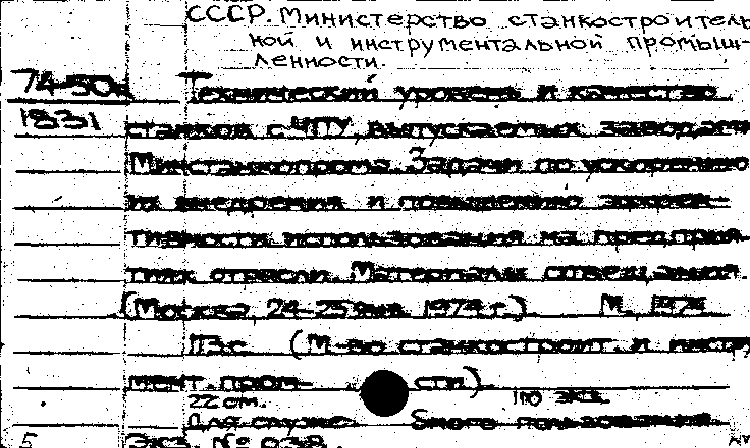 СССР. Министерство станкостроитель
ной и инструментальной промыш-
ленности.
74-50
1831
Технический уровень и качество
станков с ЧПУ, выпускаемых заводами
Минстанкопрома. Задачи по ускорению
их внедрения и повышению эффек-
тивности использования на предприя-
тиях отрасли. Материалы совещания.
(Москва, 24-25 янв. 1974 г.) М. 1974
113 с (М-во станкостроит. и инстру
мент. пром- сти).
22 см. 110 экз.
Для служеб- бного пользования.
5 Экз. № 038.